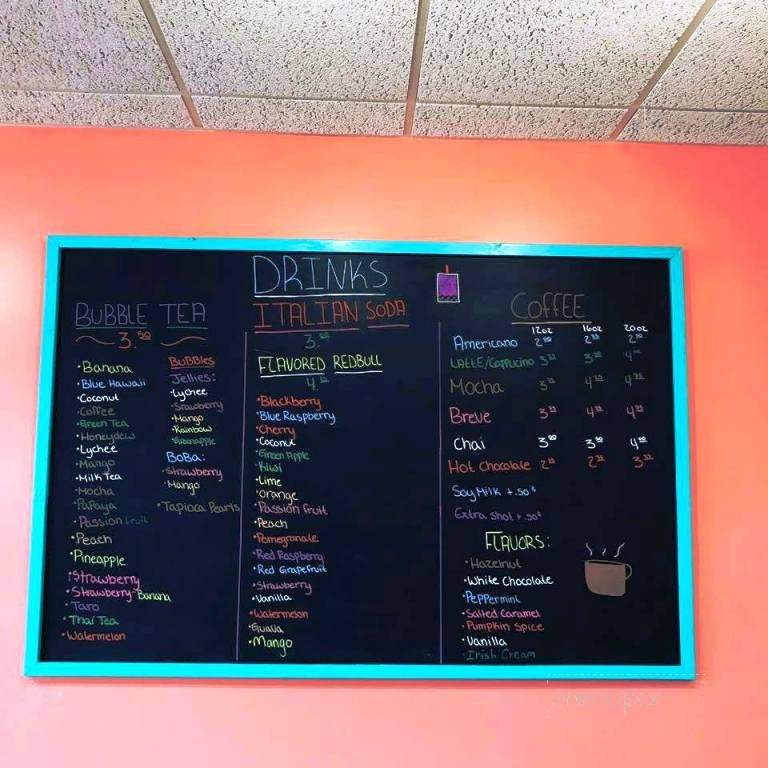 DRINKS
BUBBLE TEA
3.50
•Banana
•Blue Hawaii
•Coconut
•Coffee
•Green Tea
•Honeydew
•Lychee
•Mango
•Milk Tea
•Mocha
•Papaya
•Passion Fruit
•Peach
•Pineapple
•Strawberry
•Strawberry-Banana
•Taro
•Thai Tea
•Watermelon
BUBBles
Jellies:
•Lychee
•Strawberry
•Mango
•Rainbow
•Greenapple
BoBa:
•Strawberry
•Mango
•Tapioca Pearls
ITALIAN SODA
3.
FLAVORED REDBULL
4.
•Blackberry
•Blue Raspberry
•Cherry
•Coconut
•Green Apple
•Kiwi
•Lime
•Orange
•Passion fruit
•Peach
•Pomegranate
•Red Raspberry
•Red Grapefruit
•Strawberry
•Vanilla
•Watermelon
•Guava
•Mango
COFFEE
12oz 16oz 20oz
Americano 2
LATTE/Cappucino 3 3 4
Mocha 3 4 4
Breve 3 4 4
Chai 3 3 4
Hot Chocolate 2 2 3
Soy Milk +.50¢
Extra Shot +.50¢
FLAVORS:
•Hazelnut
•White Chocolate
•PePPermint
•Salted Caramel
•Pumpkin Spice
•Vanilla
•Irish Cream